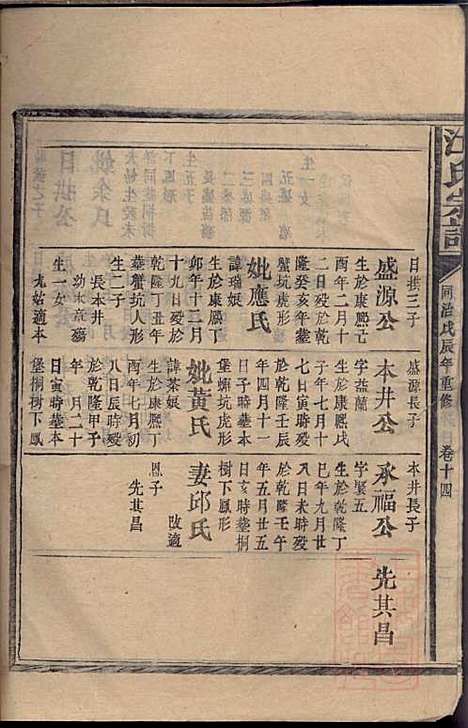 汪氏宗譜
同治戊辰年重修
卷十四
日拱三子
盛源公
生於康熙己
酉年二月十
二日歿於乾
隆癸亥年葬
蟹坑虎形
妣應氏
諱瑞娘
生於康熙丁
卯年十二月
十九日歿於
乾隆丁丑年
葬蟹坑人形
生二子
長本井
幼本京殤
生一女
尤始適本
盛源長子
本井公
字益蘭
生於康熙戊
子年七月十
七日寅時歿
於乾隆壬辰
年四月十一
日子時葬本
堡螺坑虎形
妣黃氏
諱茶娘
生於康熙丁
酉年七月初
八日辰時歿
於乾隆甲子
年 月二十
日寅時葬本
堡桐樹下鳳
本井長子
承福公
字聚五
生於乾隆丁
巳年九月廿
八日時歿
於乾隆壬午
年五月廿五
日亥時葬桐
樹下鳳形
妻邱氏
改適
恩子
先其昌
先其昌